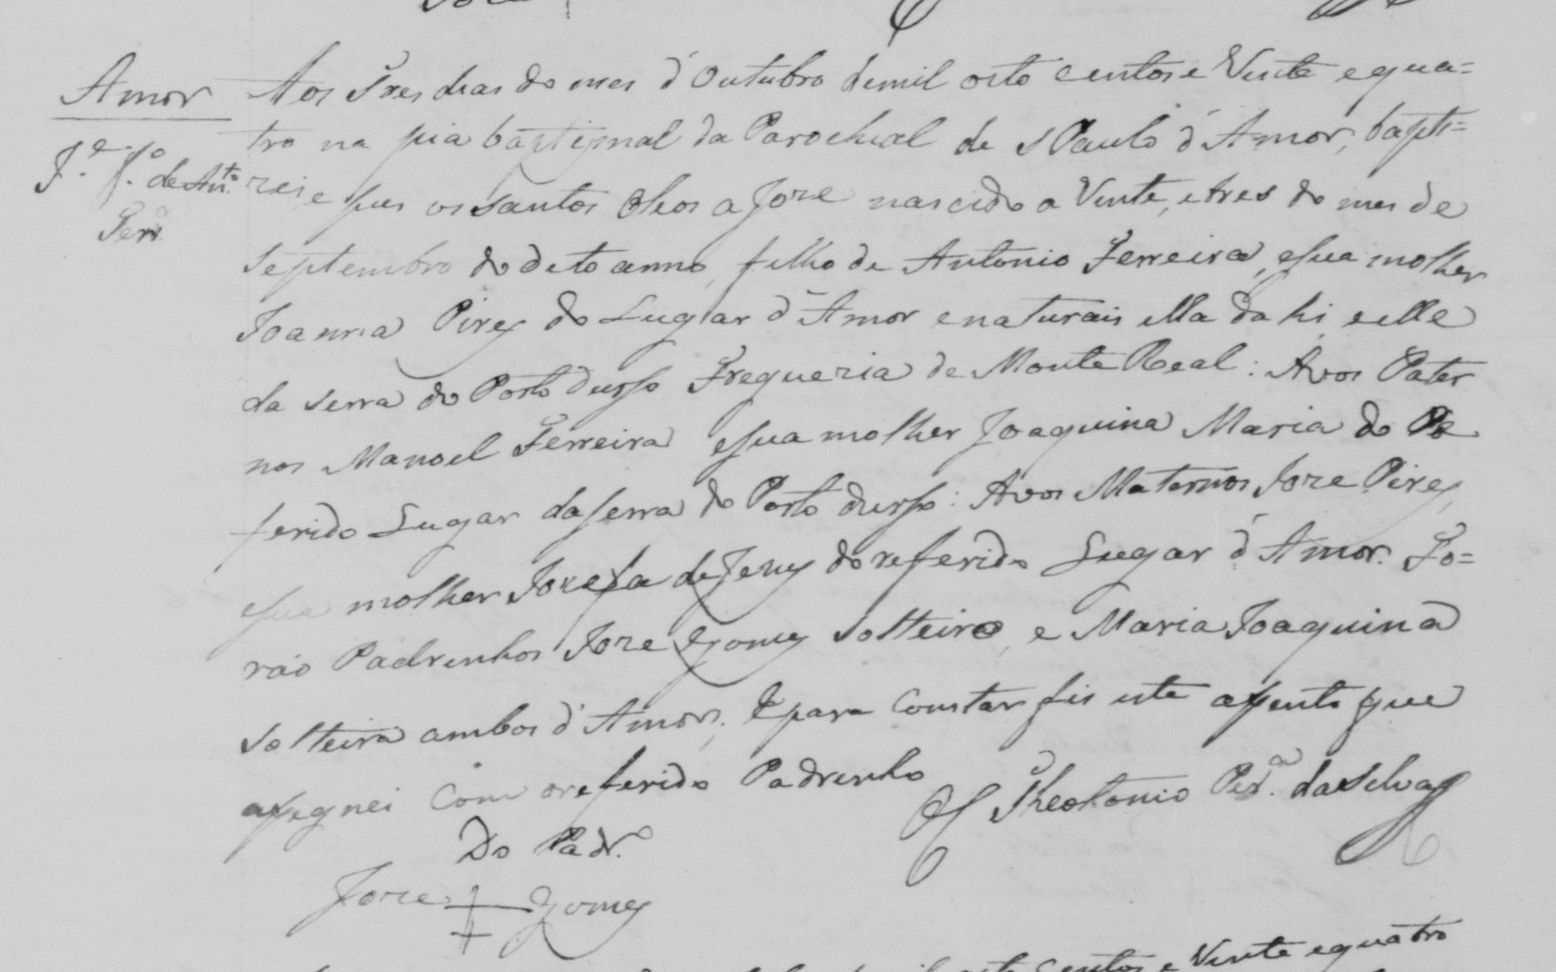 Amor
J.e f.o de An.to
Ferr.a
Aos Tres dias do mes d'Outubro de mil oito centos e Vinte e qua=
tro na pia baptismal da Parochial de S Paulo d'Amor, bapti=
zei e pus os santos Oleos a Joze nascido a Vinte, e tres do mes de
Septembro do dito anno, filho de Antonio Ferreira, e sua molher
Joanna Pires do Lugar d'Amor e naturais ella dahi, e elle
da serra do Porto durso Freguezia de Monte Real: Avos Pater
nos Manoel Ferreira e sua molher Joaquina Maria do Re
ferido Lugar da serra do Porto durso: Avos Maternos Joze Pires,
e sua molher Jozefa de Jezus do referido Lugar d'Amor. Fo=
rão Padrinhos Joze Gomes solteiro, e Maria Joaquina
solteira ambos d'Amor; E para constar fis este assento que
assegnei com o referido Padrinho
O Theotonio Per.a da Silva
Do Padr.o
Joze Gomes
centos e Vinte e quatro